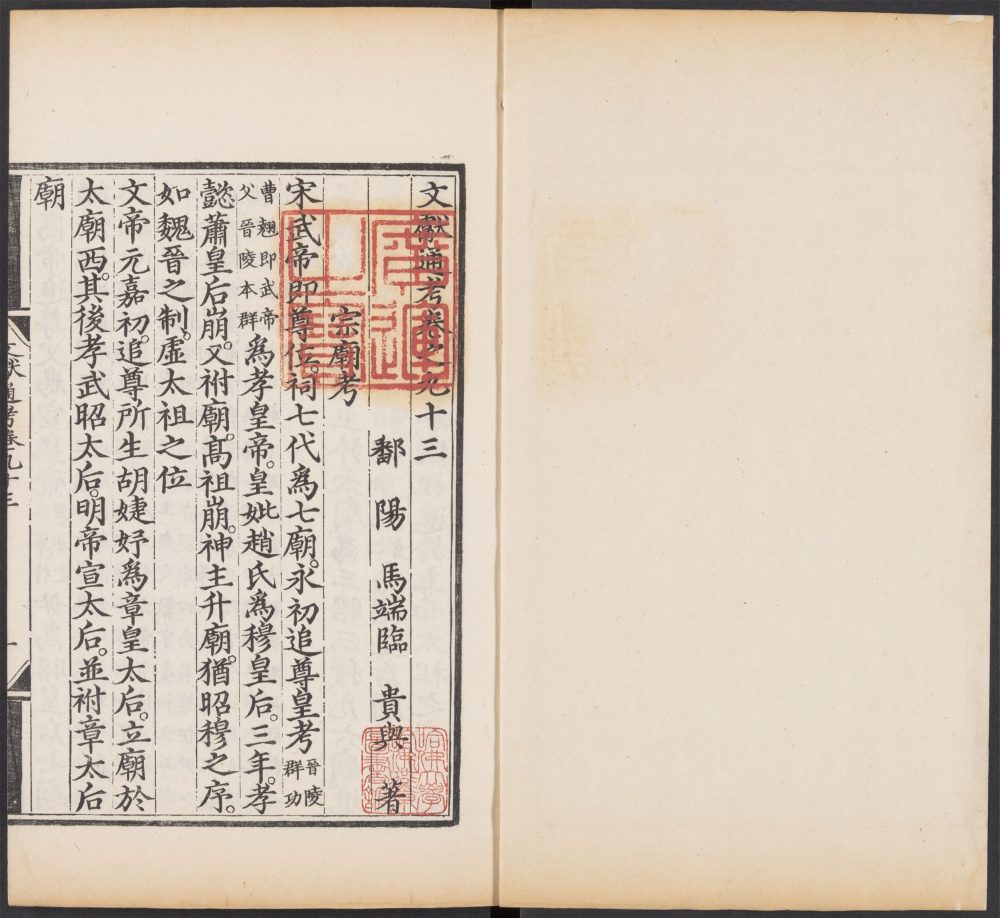 文獻通考卷之九十三
鄱陽 馬端臨 貴與 著
宗廟考
宋武帝即尊位。祠七代爲七廟。永初追尊皇考晉陵群功
曹翹即武帝父晉陵本群爲孝皇帝。皇妣趙氏爲穆皇后。三年。孝
懿蕭皇后崩。又祔廟。高祖崩。神主升廟。猶昭穆之序。
如魏晉之制。虛太祖之位
文帝元嘉初。追尊所生胡婕妤爲章皇太后。立廟於
太廟西。其後孝武昭太后。明帝宣太后。並祔章太后
廟
文獻通考卷九十三
一
哈佛大學